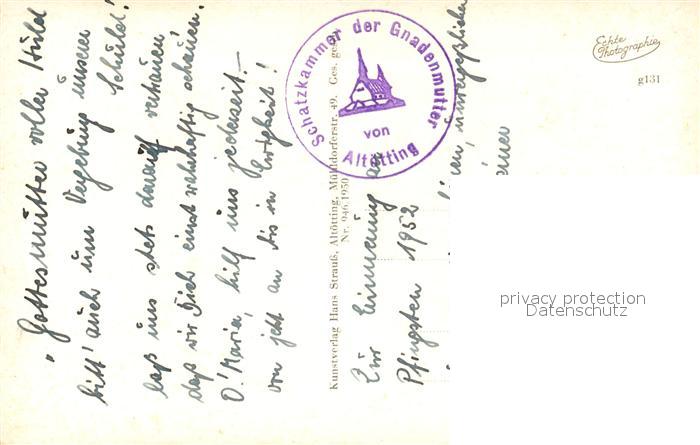 "Gottesmutter voller Huld
bitt' auch um Vergebung unserer Schuld!
laß uns stets darauf vertrauen
daß wir Dich einst wahrhaftig schauen.
O! Maria, hilf uns jederzeit.–
von jetzt an bis in Ewigkeit!
Schatzkammer der Gnadenmutter
von
Altötting
Kunstverlag Hans Strauß, Altötting, Mühldorferstr. 49. Ges. gesch.
Nr. 946/1950
Zur Erinnerung an
Pfingsten 1952
Echte
Photographie
g131
privacy protection
Datenschutz